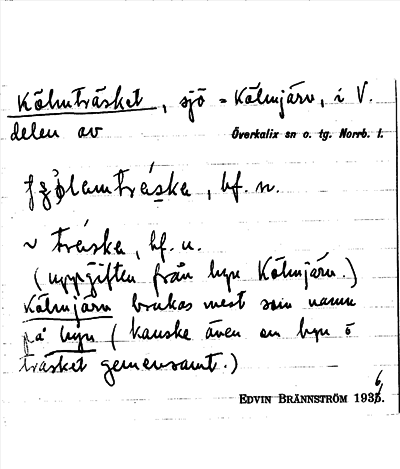 Kölmträsket, sjö = Kölmjärv, i V.
delen av Överkalix sn o. tg. Norrb. l.
träska, bf. n.
~ träska, bf. n.
(uppgiften från byn Kölmjärv.)
Kölmjärv brukas mest som namn
på byn (kanske även om byn o
träsket gemensamt.)
EDVIN BRÄNNSTRÖM 1936.